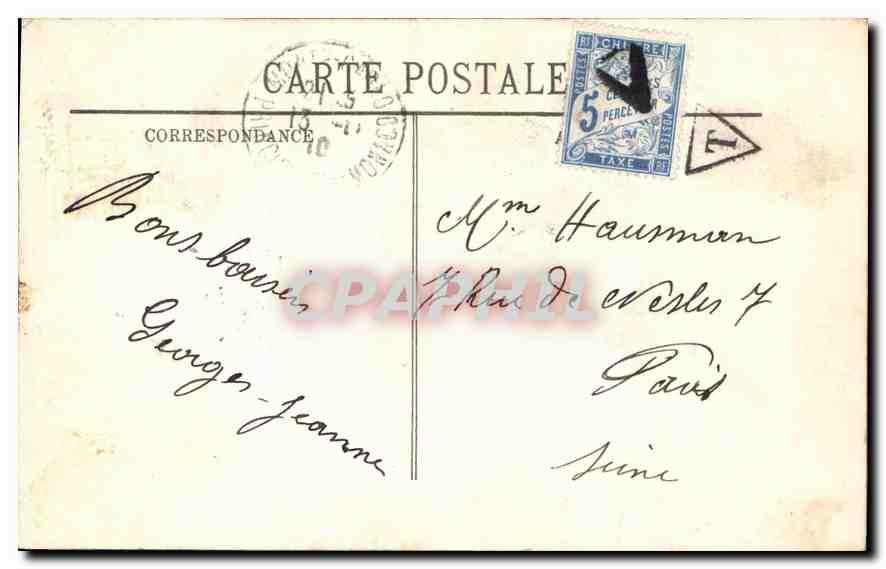 CARTE POSTALE
CORRESPONDANCE
MONACO
13
10
POSTES
CHIFFRE
RF
5
PERCEVOIR
TAXE
RF
T
Bons baisers
Georges-Jeanne
Mm Hausman
7 Rue de Nesles 7
Paris
Seine
CPAPHIL